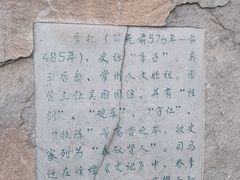 季札（公元前576年—前
485年），史称“季子”，吴
王后裔，常州人文始祖。因
曾三让吴国国位，并有“挂
剑”、“观乐”、“守仁”、
“救陈”等高贵之举，被史
家列为“春秋贤人”。司马
迁在煌煌《史记》中，